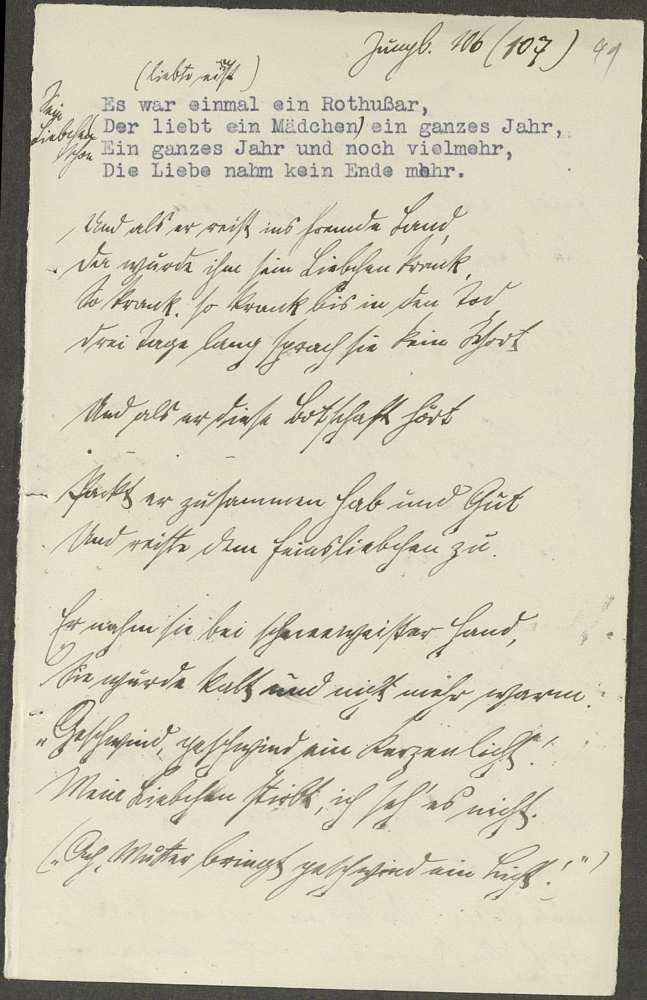 Jungbr. 106 (107) 49
(liebte einst)
Sein
Liebchen
schon
Es war einmal ein Rothußar,
Der liebt ein Mädchen) ein ganzes Jahr,
Ein ganzes Jahr und noch vielmehr,
Die Liebe nahm kein Ende mehr.
Und als er reist ins fremde Land
Da wurde ihm sein Liebchen krank,
So krank, so krank bis in den Tod
Drei Tage lang sprach sie kein Wort
Und als er diese Botschaft hört
Packt er zusammen Hab und Gut
Und reiste dem Feinsliebchen zu.
Er nahm sie bei schneeweißer Hand,
Sie wurde kalt und nicht mehr warm.
"Geschwind, geschwind ein Kerzenlicht!
Mein Liebchen stirbt, ich seh' es nicht.
("Ach, Mutter bringt geschwind ein Licht!")